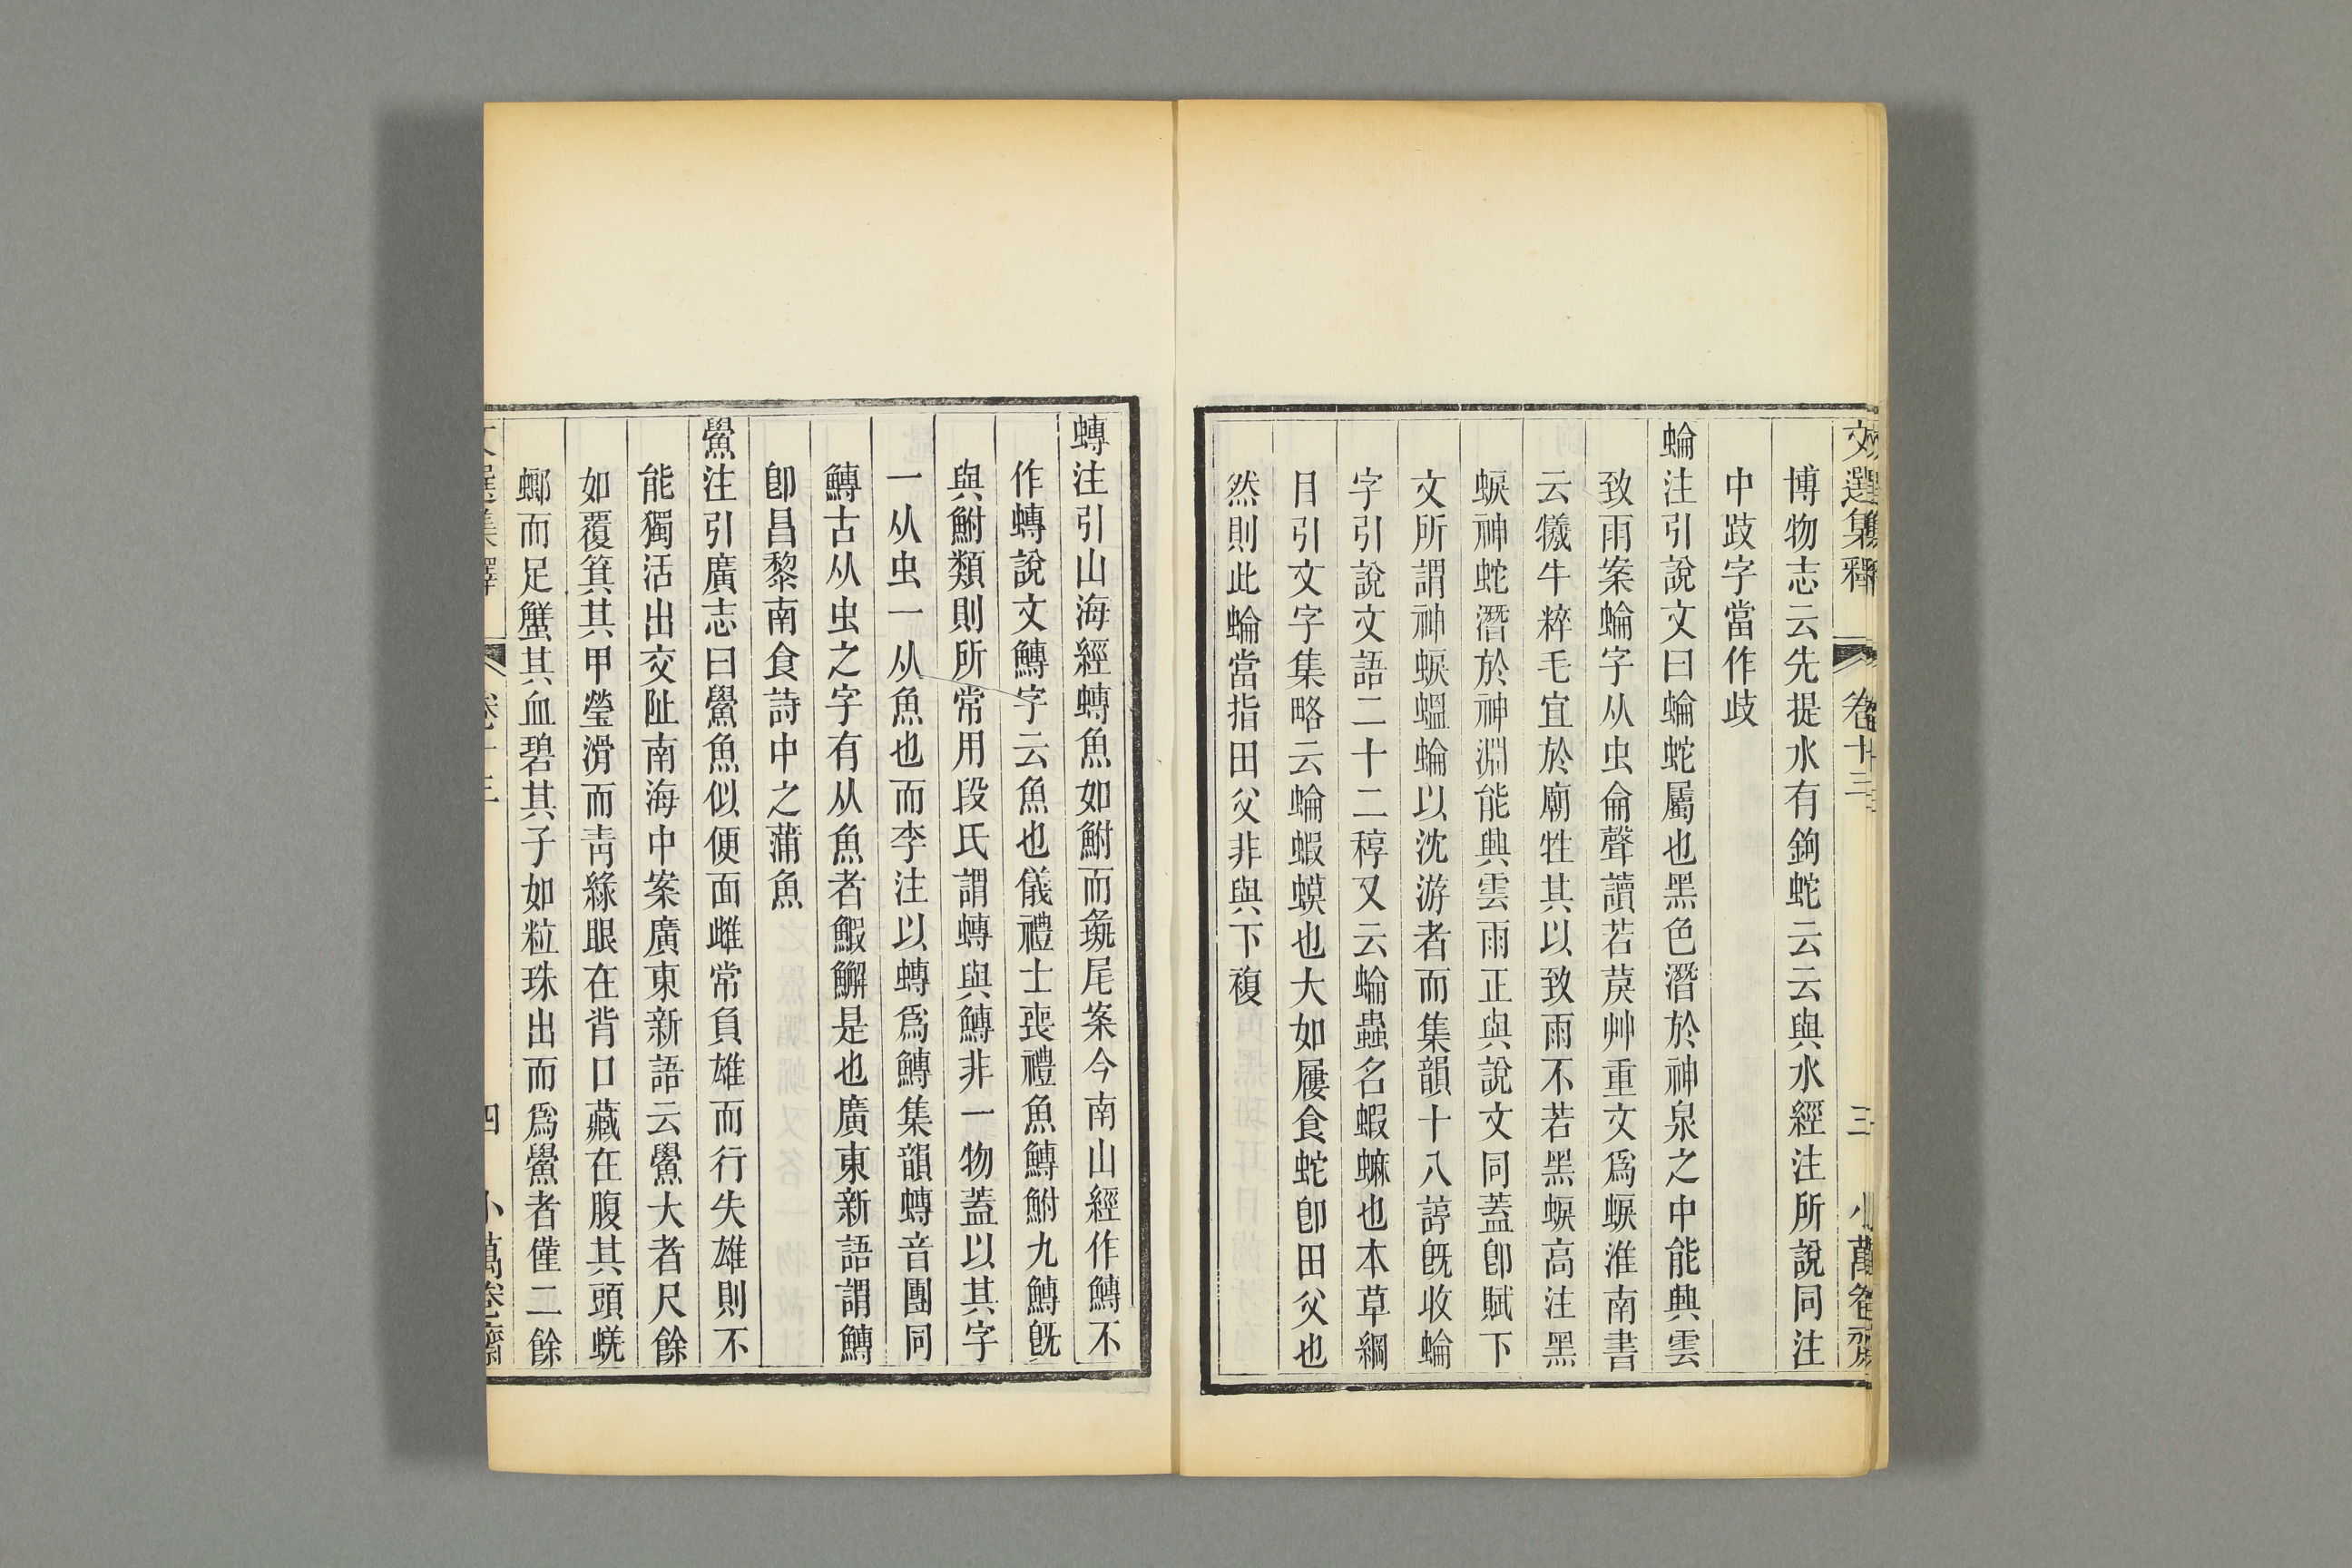 文選集釋 卷十三 三 小萬卷齋
博物志云先提水有鉤蛇云云與水經注所說同注
中跂字當作歧
蜦注引說文曰蜦蛇屬也黑色潛於神泉之中能興雲
致雨案蜦字从虫侖聲讀若戾艸重文爲蜧淮南書
云犧牛粹毛宜於廟牲其以致雨不若黑蜧高注黑
蜧神蛇潛於神淵能興雲雨正與說文同蓋卽賦下
文所謂神蜧蝹蜦以沈游者而集韻十八諄旣收蜦
字引說文語二十二稕又云蜦蟲名蝦蟆也本草綱
目引文字集略云蜦蝦蟆也大如屨食蛇卽田父也
然則此蜦當指田父非與下複
䗠注引山海經䗠魚如鮒而彘尾案今南山經作鱄不
作䗠說文鱄字云魚也儀禮士喪禮魚鱄鮒九鱄旣
與鮒類則所常用段氏謂䗠與鱄非一物蓋以其字
一从虫一从魚也而李注以䗠爲鱄集韻䗠音團同
鱄古从虫之字有从魚者鰕䲒是也廣東新語謂鱄
卽昌黎南食詩中之蒲魚
鱟注引廣志曰鱟魚似便面雌常負雄而行失雄則不
能獨活出交阯南海中案廣東新語云鱟大者尺餘
如覆箕其甲瑩滑而靑綠眼在背口藏在腹其頭蜣
螂而足蟹其血碧其子如粒珠出而爲鱟者僅二餘
文選集釋 卷十三 四 小萬卷齋